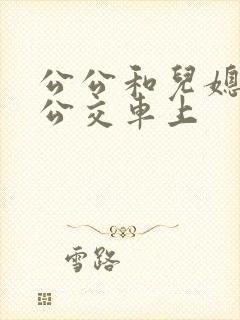 公公和兒媳
公交車上
雪路